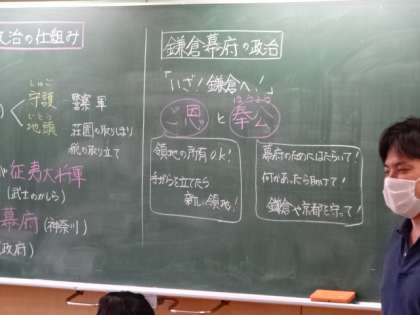 政治の仕組み
しゅご
守護 警察 軍
じとう
地頭 荘園の取りしまり
税の取り立て
征夷大将軍
(武士のかしら)
幕府(神奈川)
政府)
鎌倉幕府の政治
「いざ!鎌倉へ!」
ご恩と奉公
ほうこう
領地の所有OK!
手がらを立てたら
新しい領地!
幕府のためにはたらいて!
何かあったら助けて!
鎌倉や京都を守って!